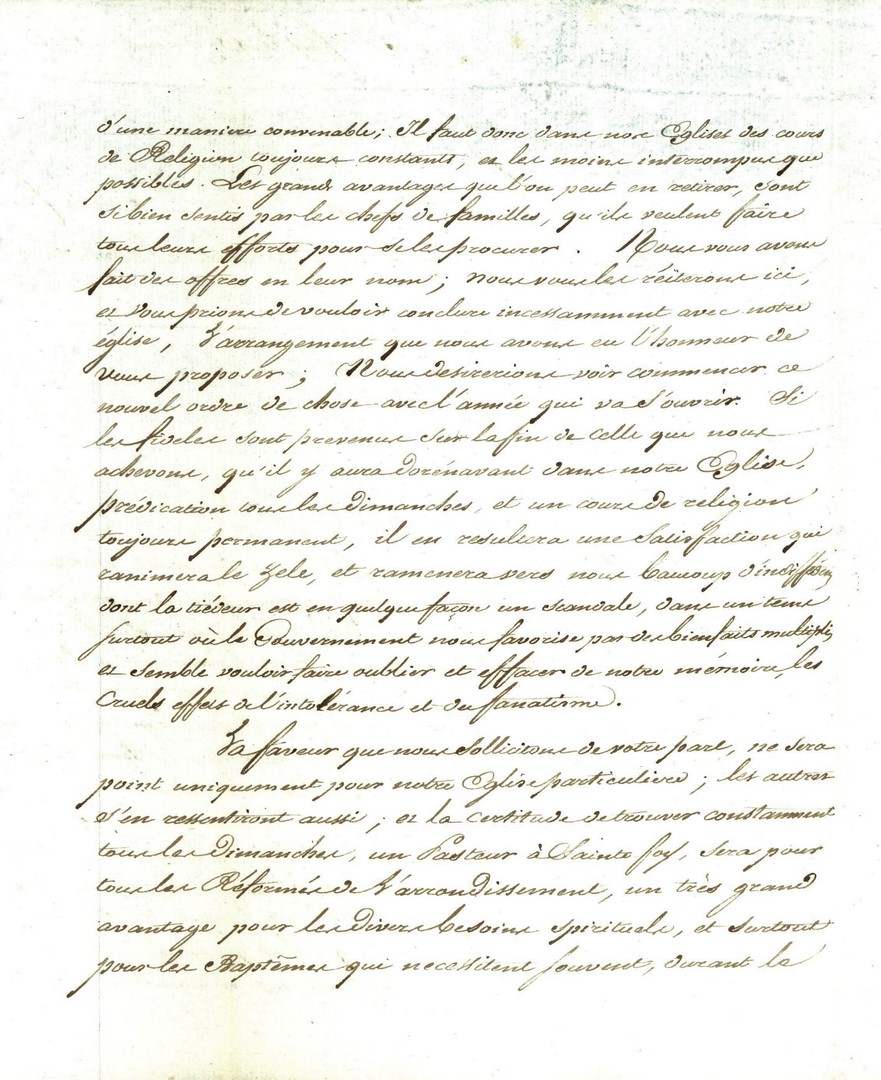 d'une maniere convenable; Il faut donc dans nos Eglises des cours
de Religion toujours constants, et les moins interrompus que
possibles. Les grands avantages que l'on peut en retirer, sont
si bien sentis par les chefs de familles, qu'ils veulent faire
tous leurs efforts pour se les procurer. Nous vous avons
fait des offres en leur nom; nous vous les réiterons ici,
et vous prions de vouloir conclure incessamment avec notre
église, L'arrangement que nous avons eu l'honneur de
vous proposer; Nous desirerions voir commencer ce
nouvel ordre de chose avec l'année qui va s'ouvrir. Si
les fideles sont prevenus sur la fin de celle que nous
achevons, qu'il y aura dorénavant dans notre Eglise,
prédication tous les Dimanches, et un cours de religion
toujours permanent, il en resultera une satisfaction qui
ranimera le zele, et ramenera vers nous baucoup d'indifférens
dont la tiédeur est en quelque façon un scandale, dans un tems
surtout où le Gouvernement nous favorise par des bienfaits multipliés
et semble vouloir faire oublier et effacer de notre mémoire, les
cruels effets de l'intolérance et du fanatisme.
La faveur que nous sollicitons de votre part, ne sera
point uniquement pour notre Eglise particuliere; les autres
s'en ressentiront aussi; et la certitude de trouver constamment
tous les Dimanches, un Pasteur à Sainte foy, sera pour
tous les Réformés de L'arrondissement, un très grand
avantage pour les divers besoins spirituels, et surtout
pour les Baptêmes qui necessitent souvent, durant la